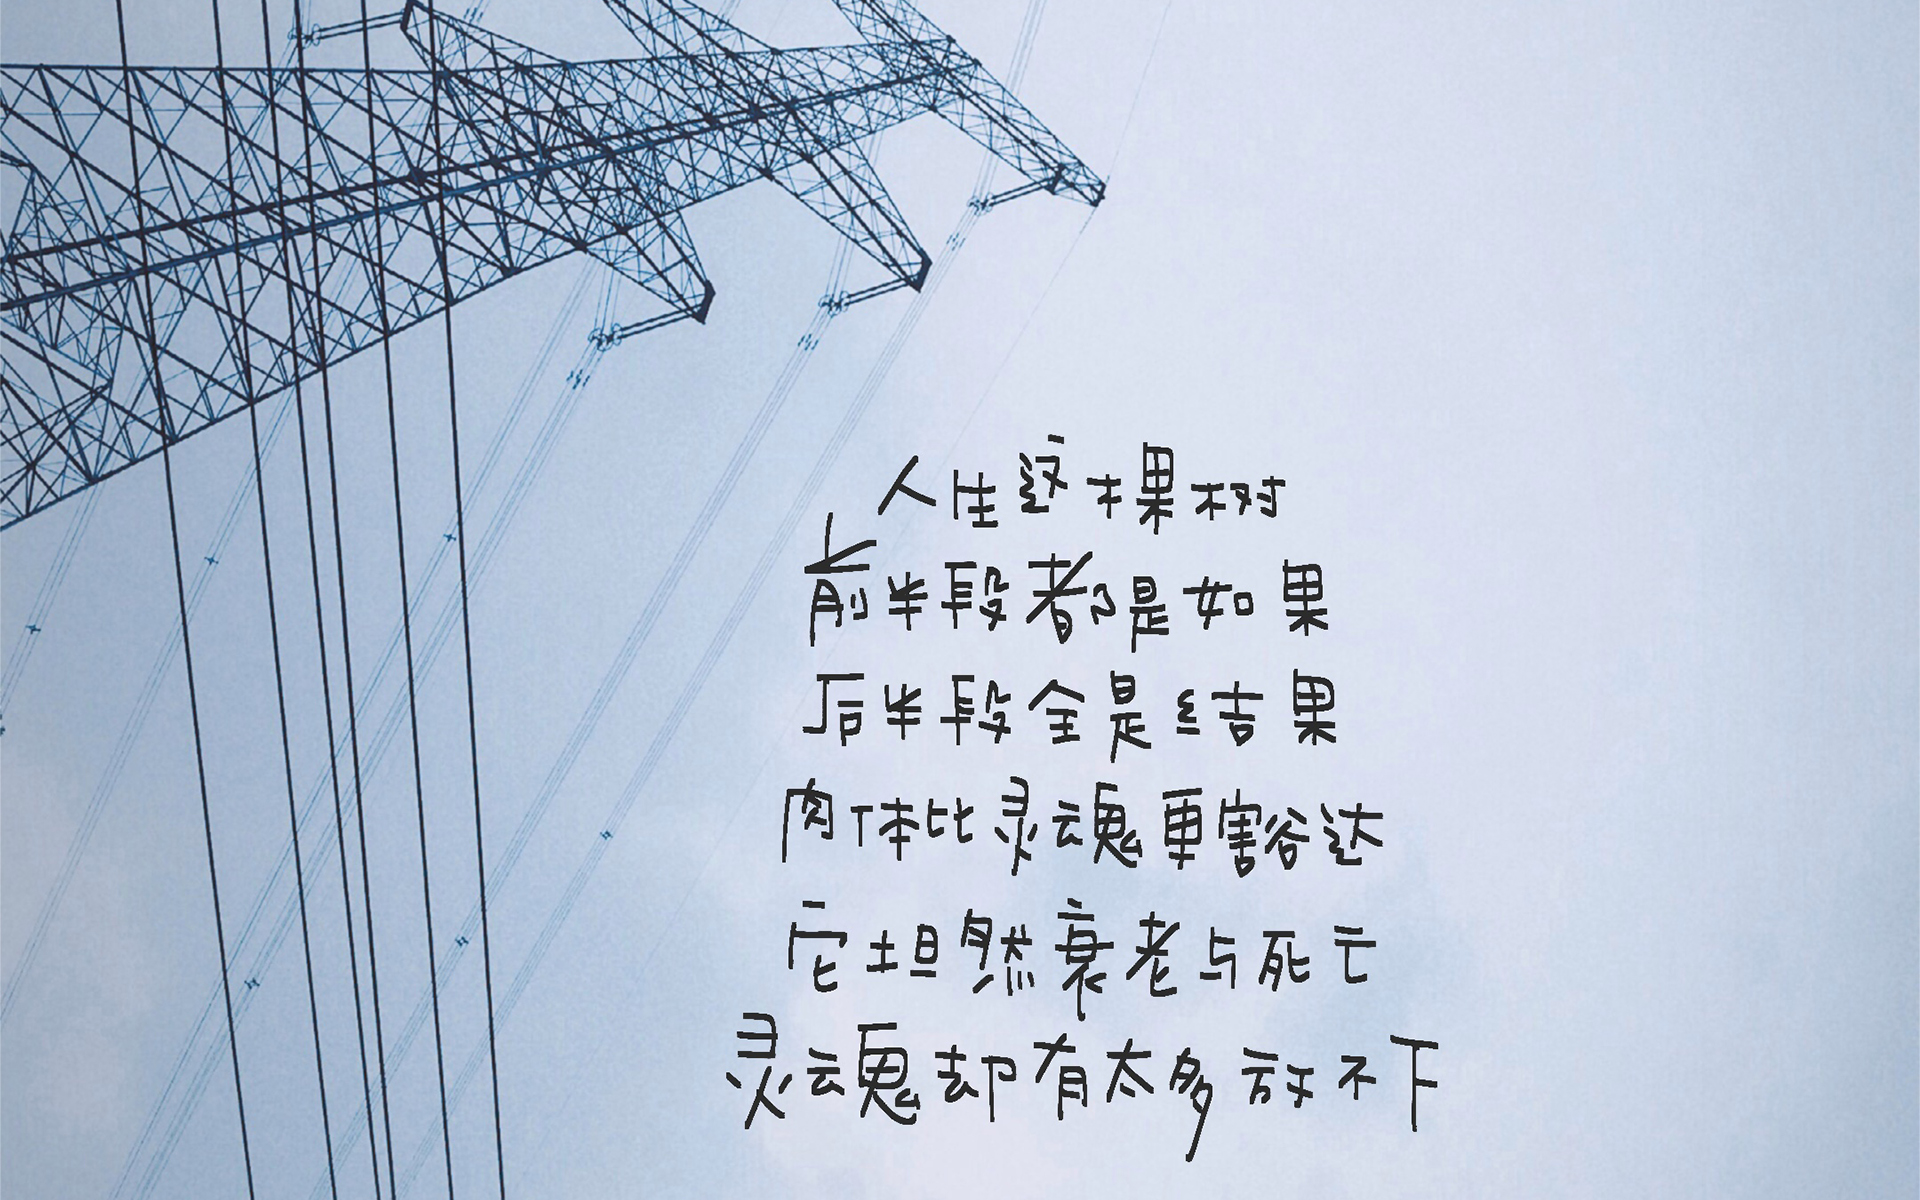 人生这棵树
前半段都是如果
后半段全是结果
肉体比灵魂更豁达
它坦然衰老与死亡
灵魂却有太多放不下